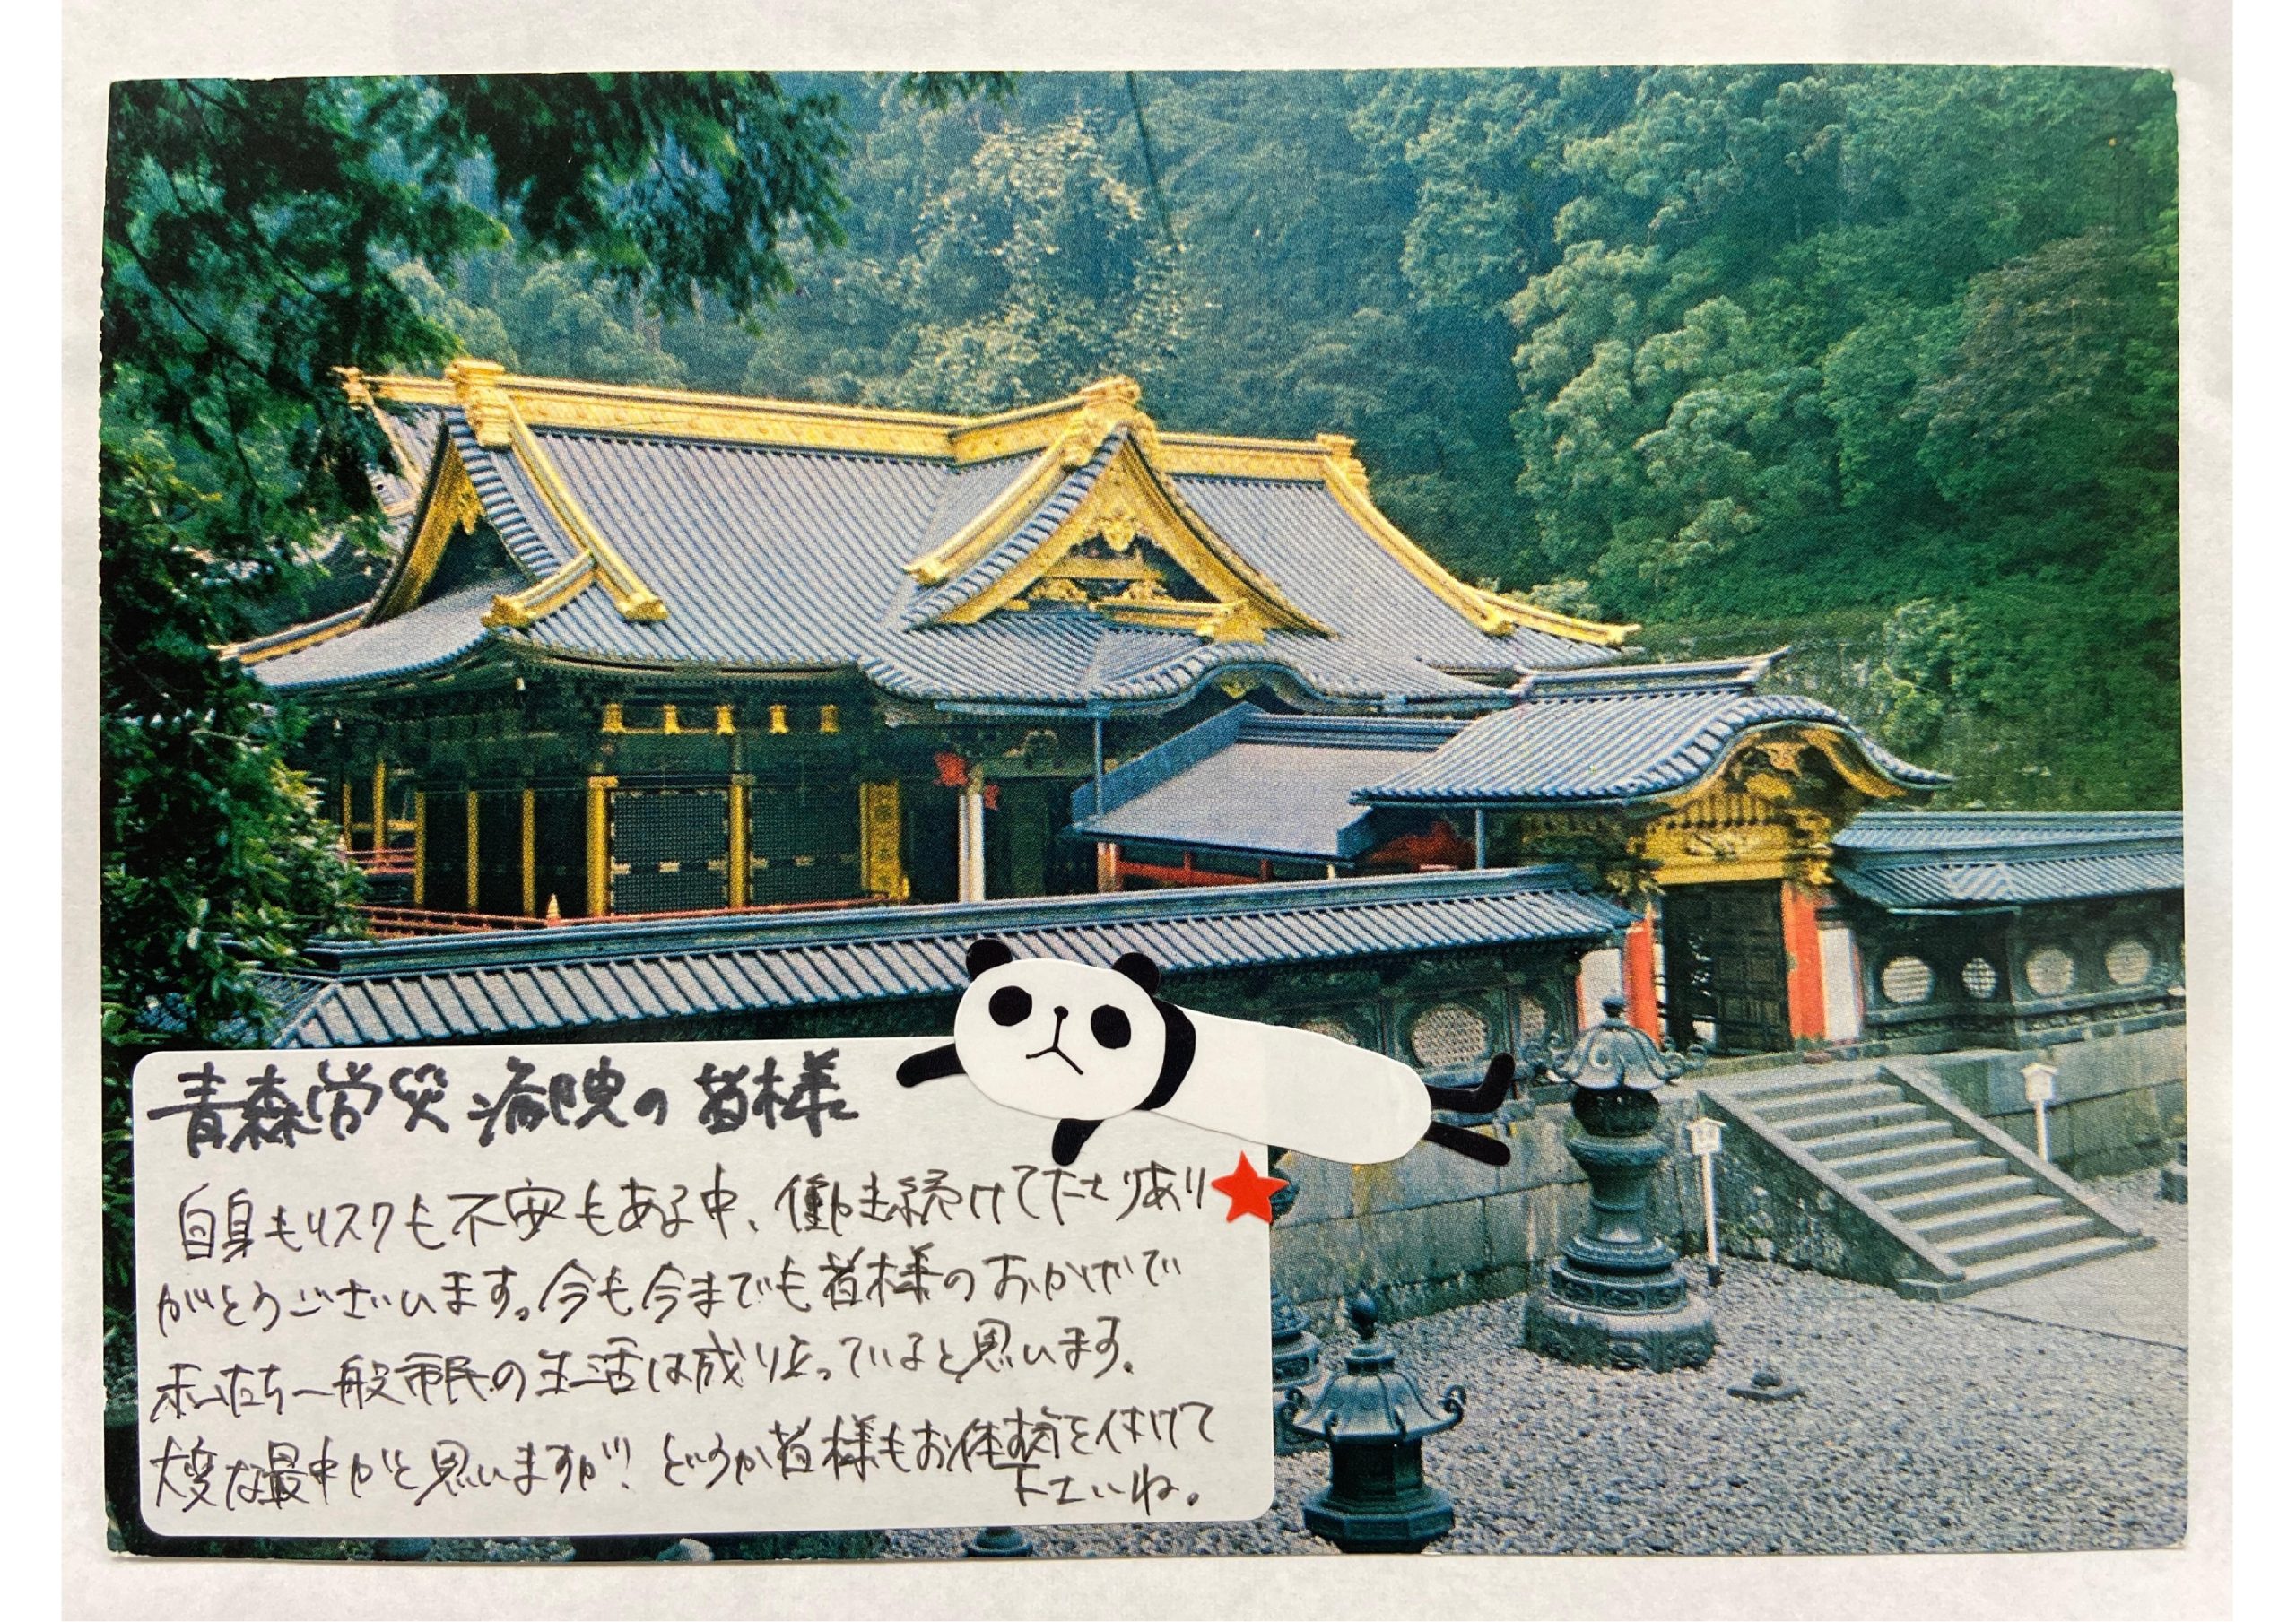 青森労災病院の皆様
自身もリスクも不安もある中、働き続けて下さりあり
がとうございます。今も今までも皆様のおかげで
私たち一般市民の生活は成り立っていると思います。
大変な最中かと思いますが、どうか皆様もお体お気を付けて
下さいね。